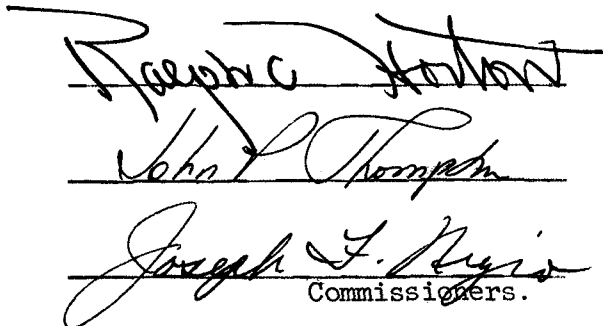 Ralph C Horton
John P Thompson
Joseph F.
Commissioners.